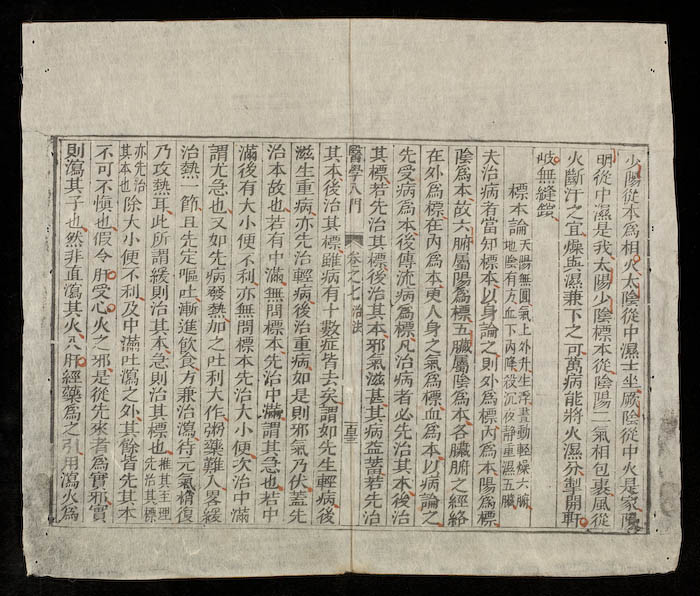 少陽從本爲相火太陰從中濕土坐厥陰從中火是家陽
明從中濕是我太陽少陰標本從陰陽二氣相包裹風從
火斷汗之宜燥與濕兼下之可萬病能將火濕分掣開軒
岐無縫鎖
標本論 天陽無圓氣上外升生浮晝動輕燥六腑 地陰有方血下内降殺沉夜靜重濕五臟
夫治病者當知標本以身論之則外爲標内爲本陽爲標
陰爲本故六腑屬陽爲標五臟屬陰爲本各臟腑之經絡
在外爲標在内爲本更人身之氣爲標血爲本以病論之
先受病爲本後傳流病爲標凡治病者必先治其本後治
其標若先治其標後治其本邪氣滋甚其病益蓄若先治
醫學入門 卷之七 治法
其本後治其標雖病有十數症皆去矣謂如先生輕病後
滋生重病亦先治輕病後治重病如是則邪氣乃伏蓋先
治本故也若有中滿無問標本先治中滿謂其急也若中
滿後有大小便不利亦無問標本先治大小便次治中滿
謂尤急也又如先病發熱加之吐利大作粥藥難入畧緩
治熱一節且先定嘔吐漸進飲食方兼治瀉待元氣稍復
乃攻熱耳此所謂緩則治其本急則治其標也 推其至理先治其標
亦先治其本也 除大小便不利及中滿吐瀉之外其餘皆先其本
不可不愼也假令肝受心火之邪是從先來者爲實邪實
則瀉其子也然非直瀉其火入肝經藥爲之引用瀉火爲